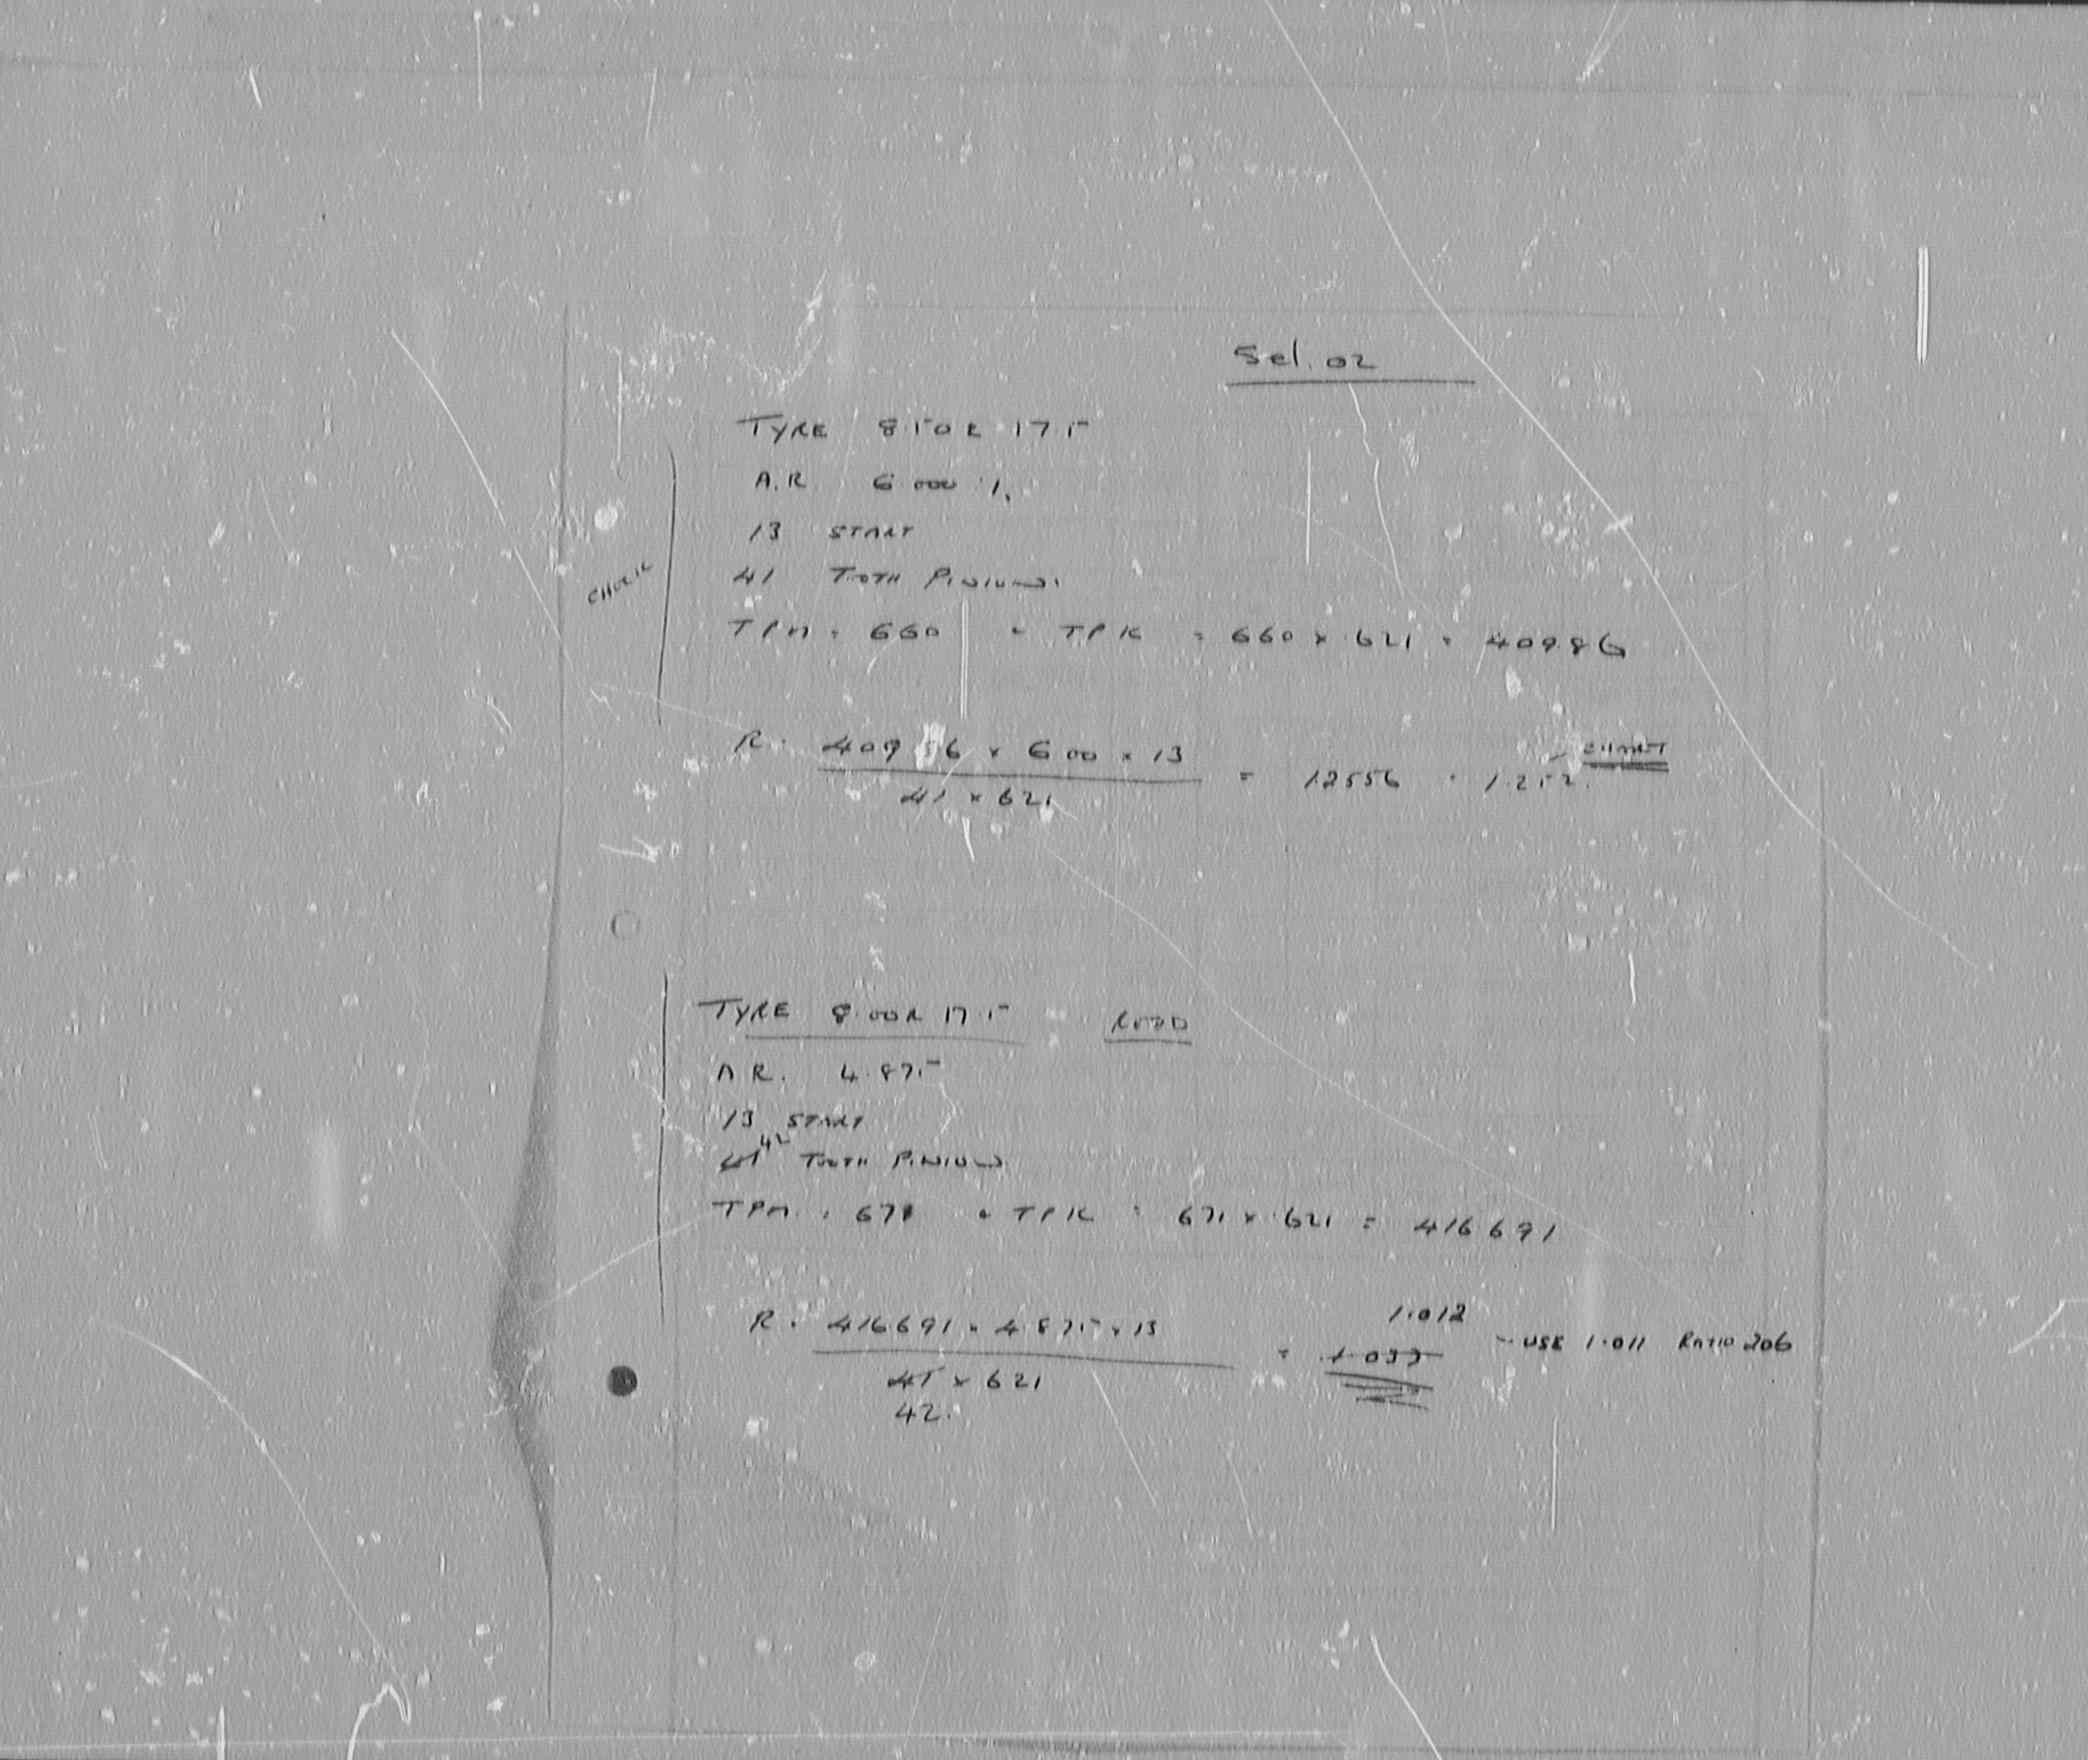 Sel. 02
TYRE 8.50R 17.5
A.R 6.000 :1.
13 START
CHECK
41 TOOTH PINION.
TPM = 660 ∴ TPK = 660 x .621 = 409.86
R = 409.86 x 6.00 x 13 = 1.2556 = 1.252
CHART
41 x 621
TYRE 8.00R 17.5 ROAD
A.R. 4.875
13 START
41 42 TOOTH PINION
TPM = 671 ∴ TPK = 671 x .621 = 416.691
1.012
R = 416.691 x 4.875 x 13 = 1.033 - USE 1.011 RATIO 206
41 x 621
42.